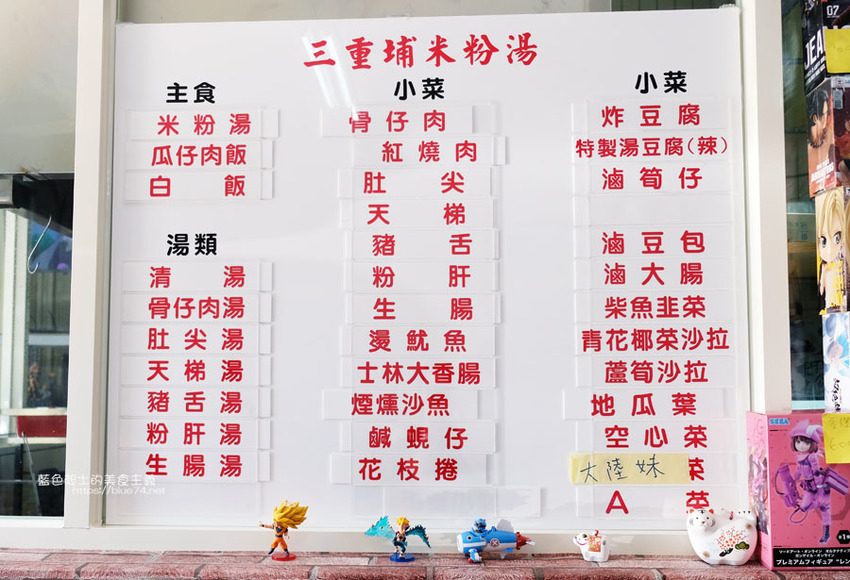 三重埔米粉湯
主食
米粉湯
瓜仔肉飯
白飯
湯類
清湯
骨仔肉湯
肚尖湯
天梯湯
豬舌湯
粉肝湯
生腸湯
小菜
骨仔肉
紅燒肉
肚尖
天梯
豬舌
粉肝
生腸
燙魷魚
士林大香腸
煙燻沙魚
鹹蜆仔
花枝捲
小菜
炸豆腐
特製湯豆腐(辣)
滷筍仔
滷豆包
滷大腸
柴魚韭菜
青花椰菜沙拉
蘆筍沙拉
地瓜葉
空心菜
大陸妹菜
A菜
藍色戰士的美食主義
https://blue74.net
07
SEGA
プレミアムフィギュア "レン